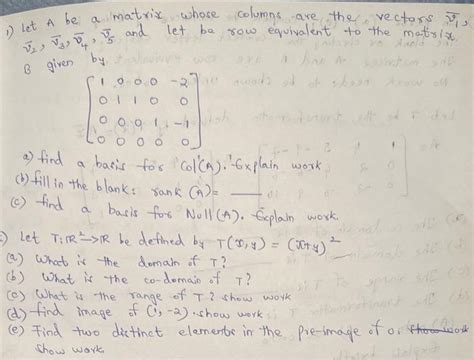 1) Let A be a matrix whose columns are the vectors v̄1,
v̄2, v̄3, v̄4, v̄5 and let be row equivalent to the matrix
B given by
1 0 0 0 -2
0 1 1 0 0
0 0 0 1 -1
0 0 0 0 0
a) find a basis for Col(A). Explain work
(b) fill in the blank: rank (A) = ___
(c) find a basis for Null (A). Explain work.
) Let T: R² → R be defined by T(x,y) = (x+y)²
(a) What is the domain of T?
(b) What is the co-domain of T?
(c) What is the range of T? show work
(d) find image of (1, -2). show work
(e) Find two distinct elements in the pre-image of 0.
show work